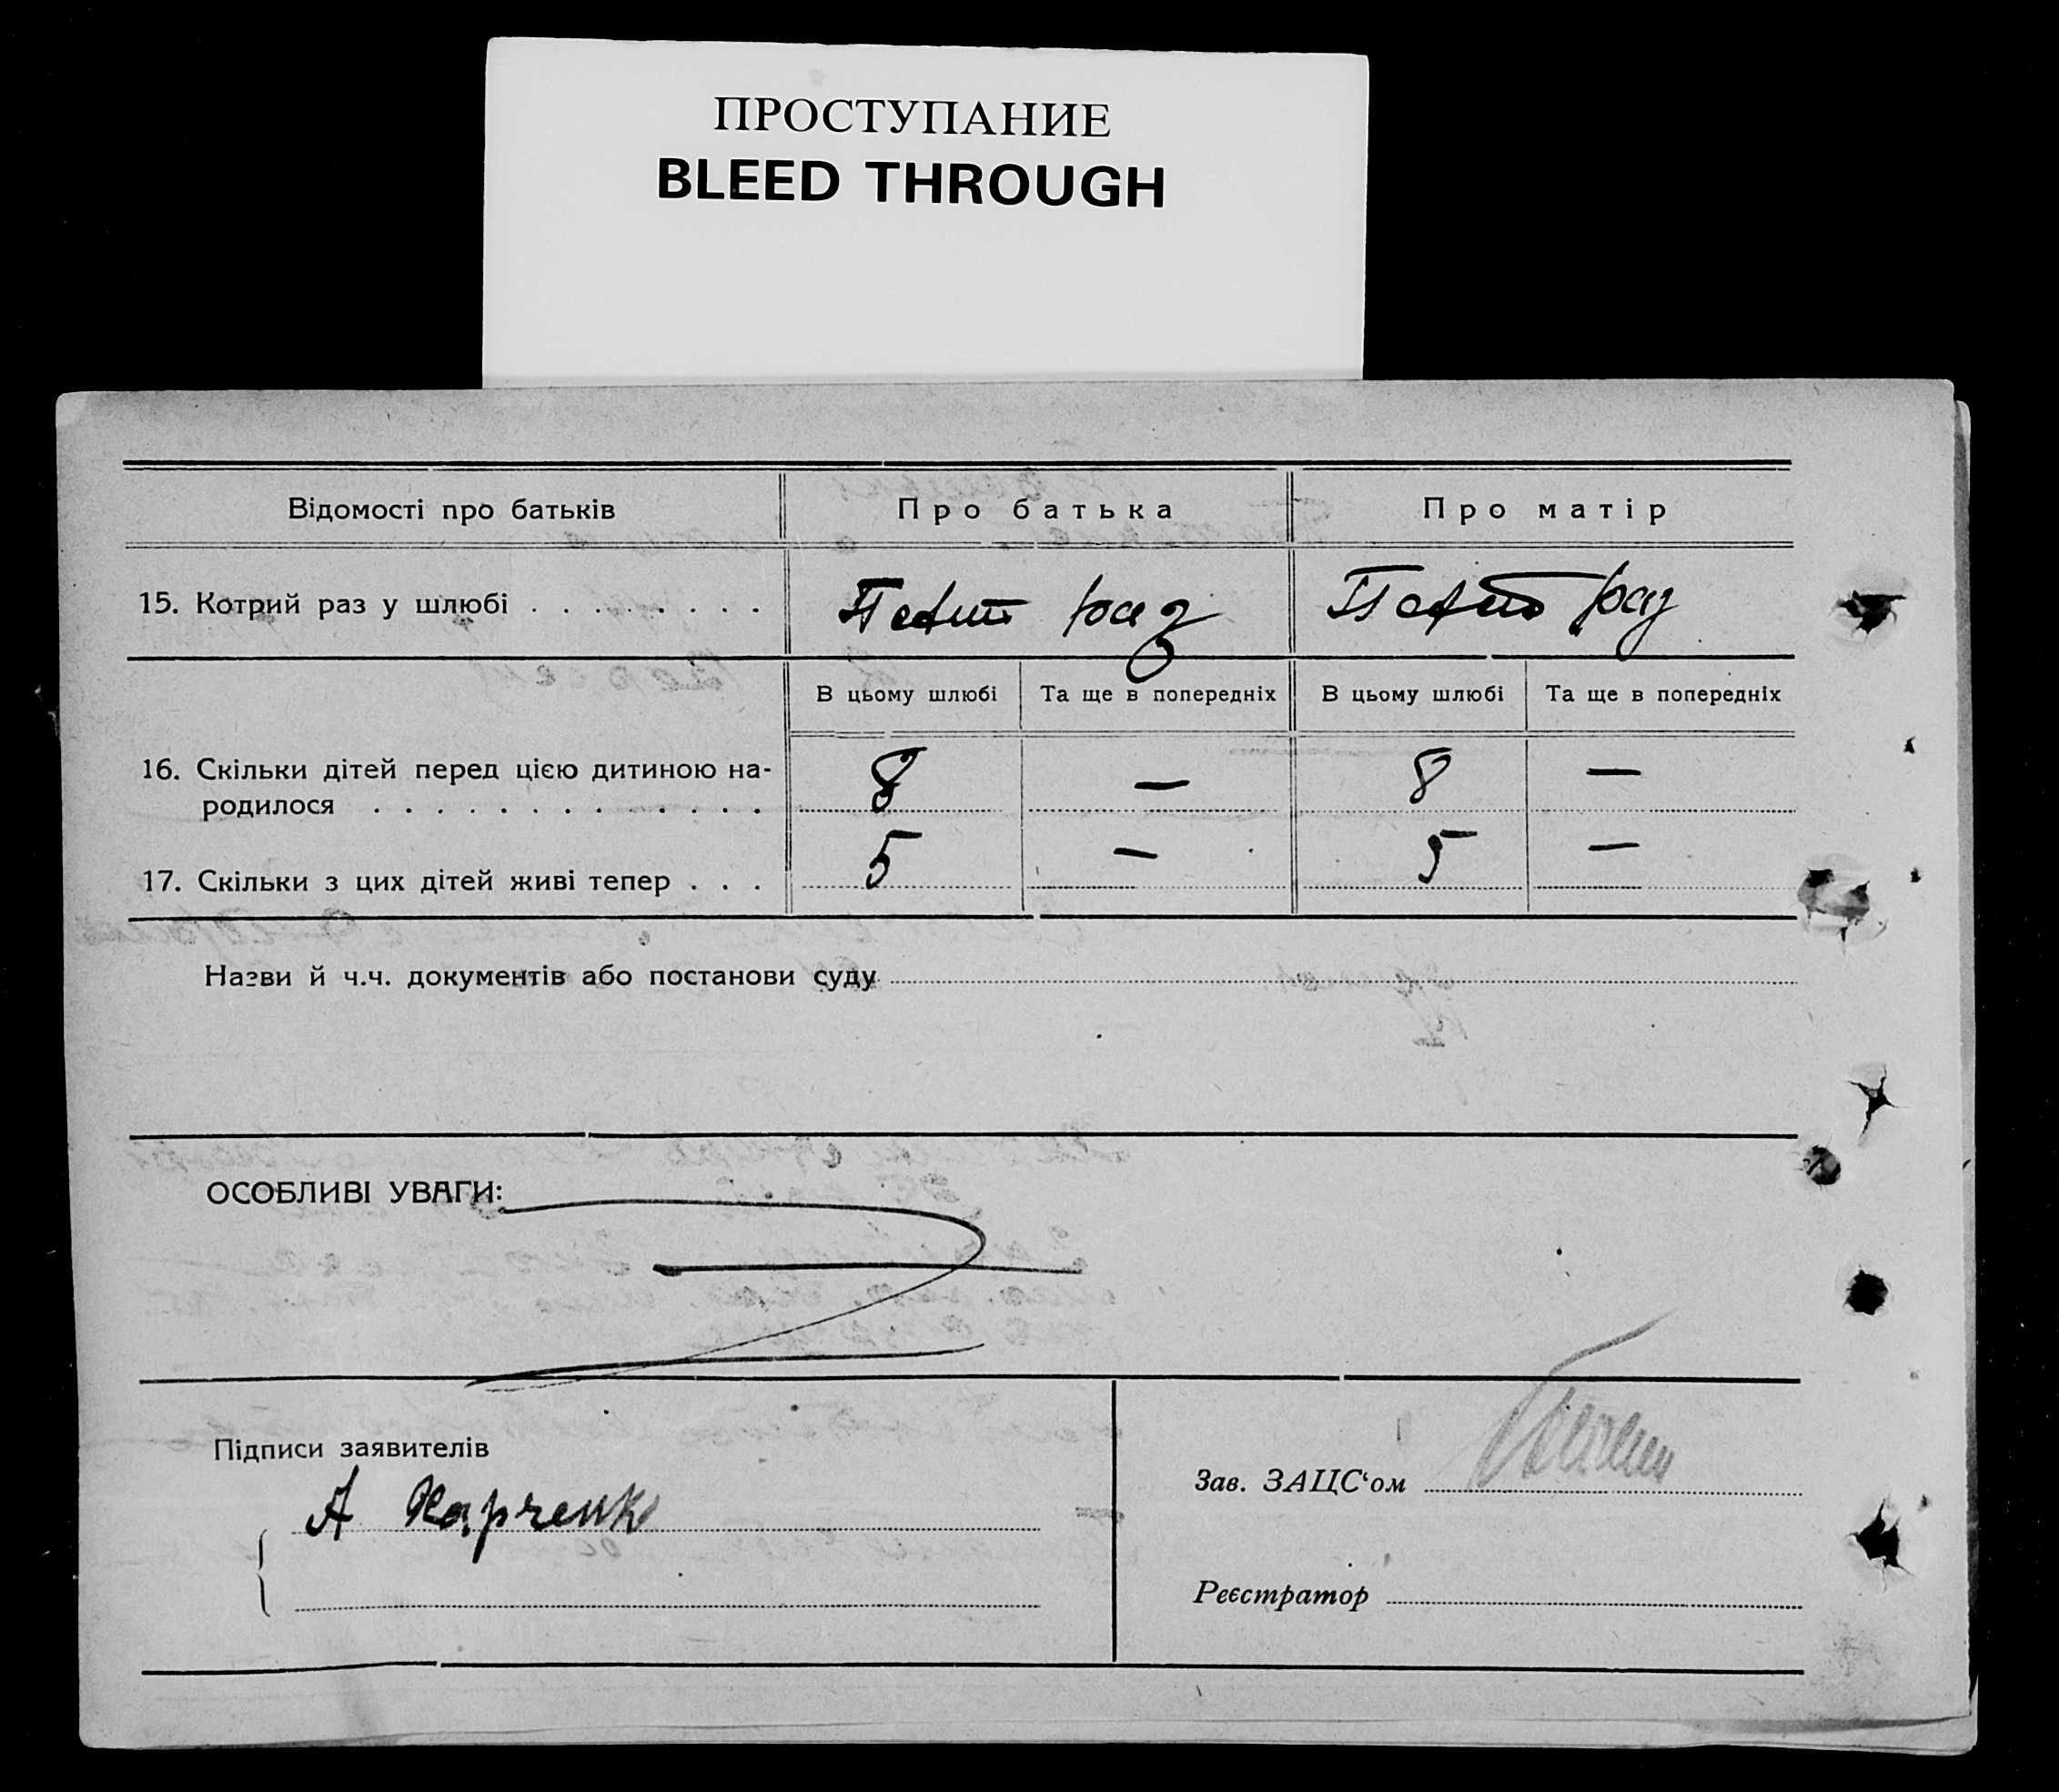 ПРОСТУПАНИЕ
BLEED THROUGH
Відомості про батьків Про батька Про матір
15. Котрий раз у шлюбі . . . . . . . . раз раз
В цьому шлюбі Та ще в попередніх В цьому шлюбі Та ще в попередніх
16. Скільки дітей перед цією дитиною на-
родилося . . . . . . . . . . . . . 8 — 8 —
17. Скільки з цих дітей живі тепер . . . 5 — 5 —
Назви й ч.ч. документів або постанови суду
ОСОБЛИВІ УВАГИ:
Підписи заявителів
А Харченко
Зав. ЗАЦС‘ом
Реєстратор